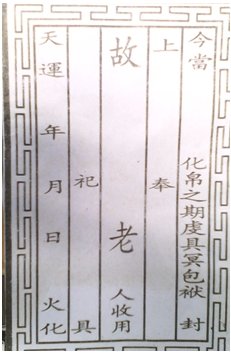 今當 化帛之期虔具冥包袱 封
上奉
故 老 人收用
祀 具
天運 年 月 日 火化